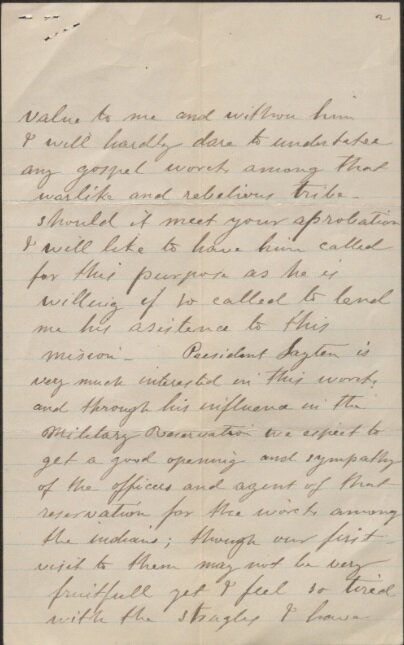 2
value to me and withou him
I will hardly dare to undertake
any gospel work among that
warlike and rebelious tribe.
should it meet your aprobation
I will like to have him called
for this purpose as he is
willing if so called to lend
me his asistence to this
mission - President Layton is
very much interested in this work,
and through his influence in the
Military Reservation we expect to
get a good opening and sympathy
of the offices and agent of that
reservation for the work among
the indians; though our first
visit to them may not be very
fruitfull yet I feel so tired
with the stragles I have